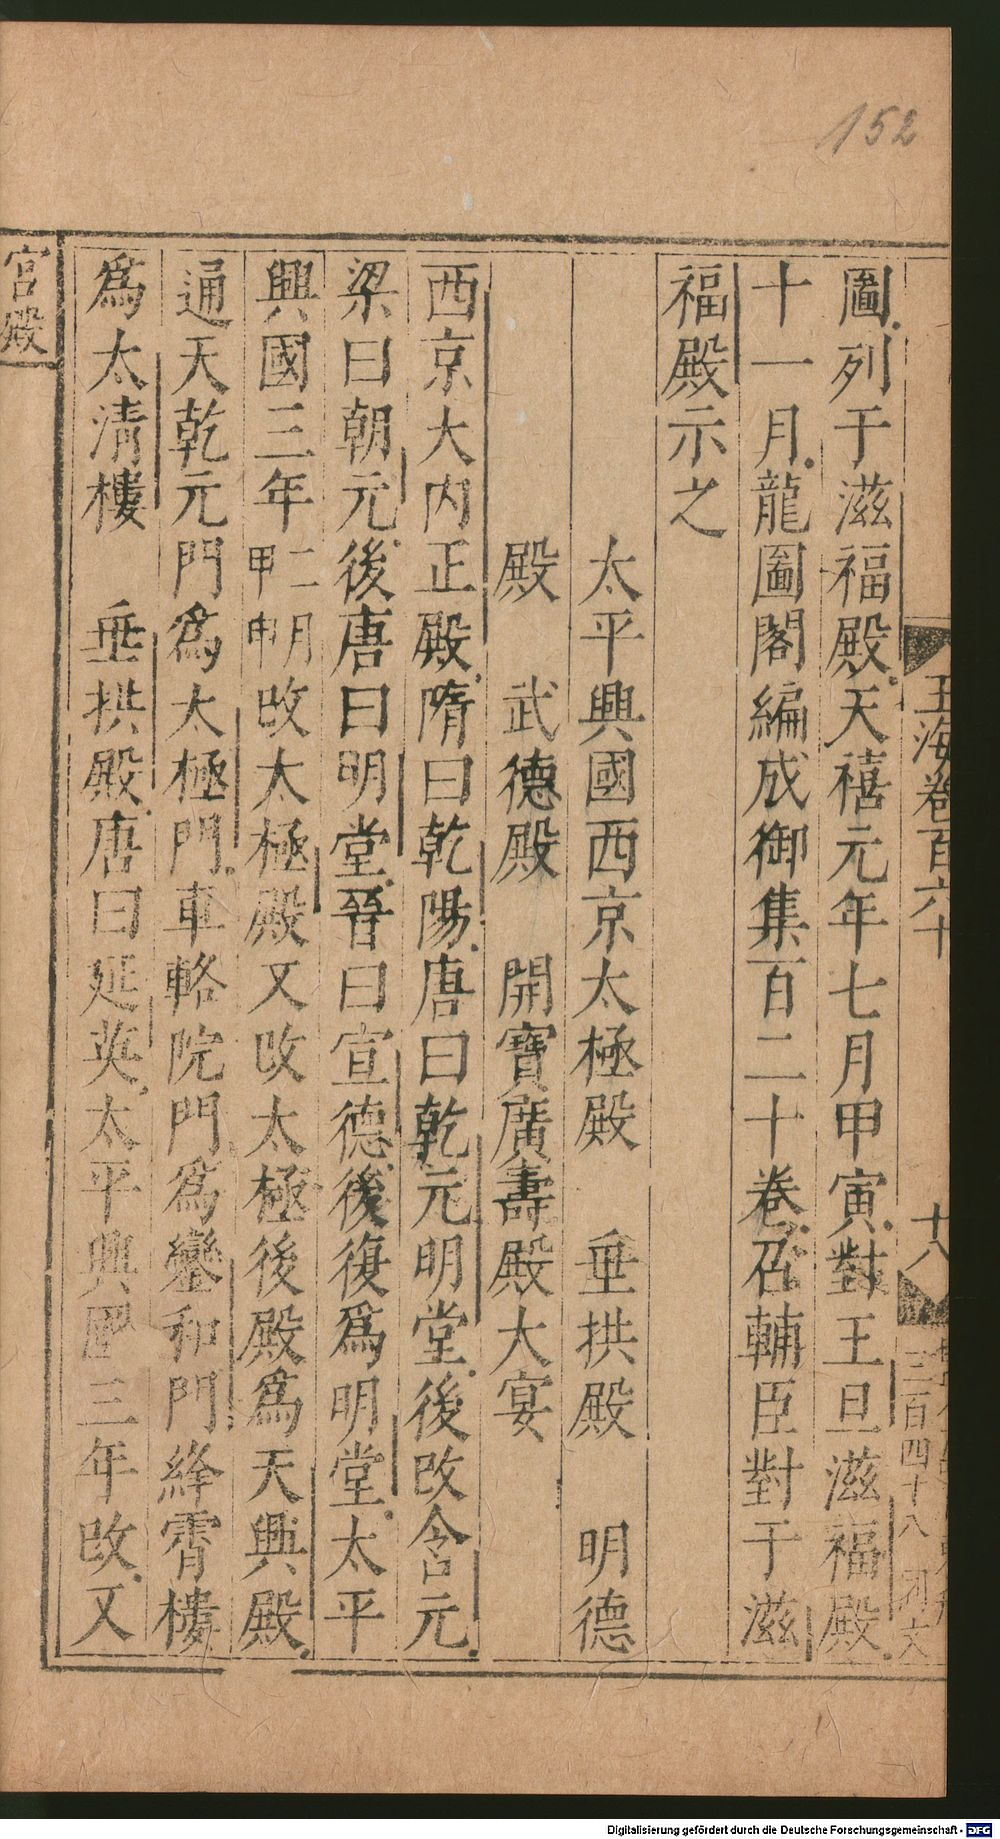 152
玉海卷百六十
十八
三百四十八
圗列于滋福殿天禧元年七月甲寅對王旦滋福殿
十一月龍圗閣編成御集百二十卷召輔臣對于滋
福殿示之
太平興國西京太極殿 垂拱殿 明德
殿 武德殿 開寶廣壽殿大宴
西京大內正殿隋曰乾陽唐曰乾元明堂後改含元
梁曰朝元後唐曰明堂晉曰宣德後復為明堂太平
興國三年二月甲申改太極殿又改太極後殿為天興殿
通天乾元門為太極門車輅院門為鑾和門絳霄樓
為太清樓 垂拱殿唐曰延英太平興國三年改又
宮殿
Digitalisierung gefördert durch die Deutsche Forschungsgemeinschaft - DFG